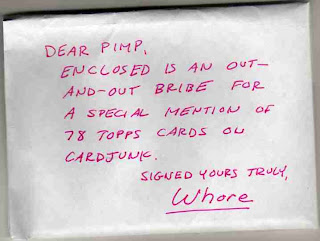 DEAR PIMP,
ENCLOSED IS AN OUT-
AND-OUT BRIBE FOR
A SPECIAL MENTION OF
78 TOPPS CARDS ON
CARDJUNK.
SIGNED YOURS TRULY,
Whore